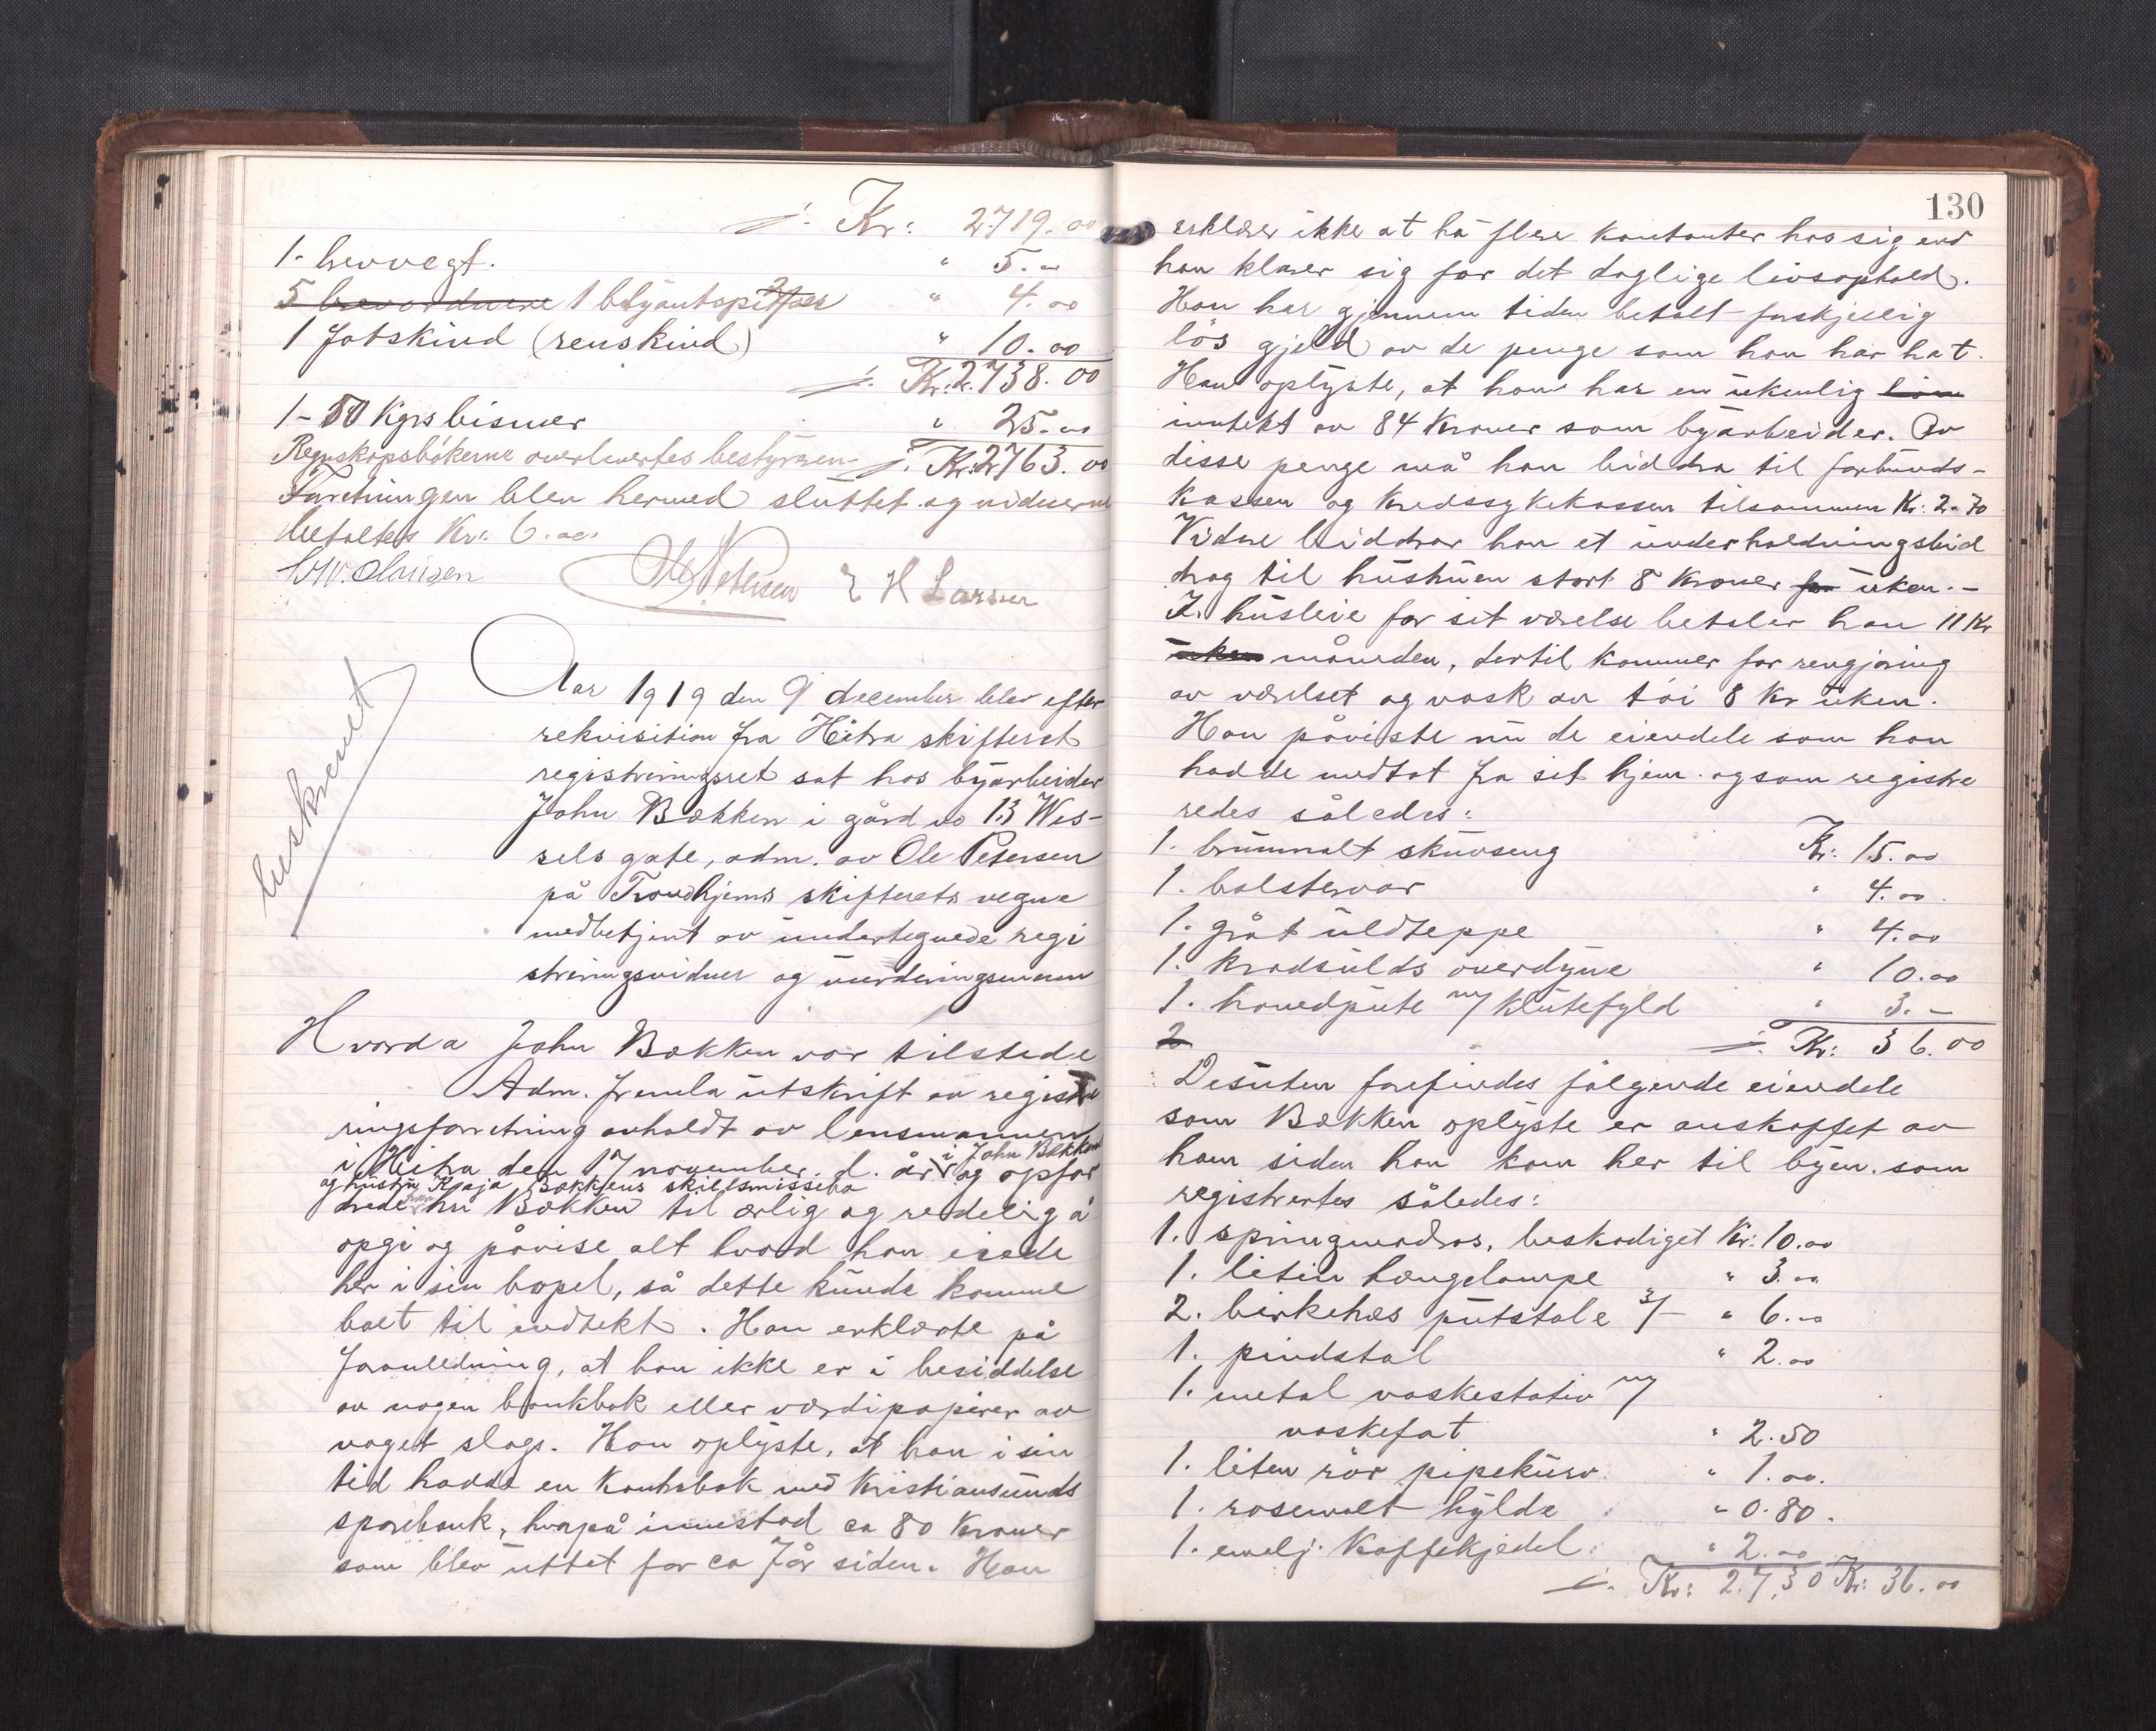 ./. Kr: 2719.00
1. brevvegt. " 5.00
5 brevordnere 1 blyantspidser " 4.00
1 fotskind (renskind) " 10.00
./. Kr. 2.738.00
1 - 50 Kgrs bismer " 25.00
Regnskapsbökerne overlevertes bestyreren ./. Kr. 2763.00
Forretningen blev hermed sluttet og vidnerne
betaltes Kr: 6.00
Ole Petersen E H Larsen
beskrevet
Aar 1919 den 9 december blev efter
rekvisition fra Hitra skifteret
registreringsret sat hos byarbeider
John Bækken i gård no 13 Wes-
sels gate, adm. av Ole Petersen
på Trondhjems skifterets vegne
medbetjent av undertegnede regi
streringsvidner og vurderingsmænn
Hvorda John Bækken var tilstede
Adm. fremla utskrift av registre
ringsforretning avholdt av lensmannen
i Hitra den 17 november d. år i John Bækken og opfor
og hustru Kaja Bækkens skilsmissebo
drede hr Bækken til ærlig og redelig å
opgi og påvise alt hvad han eiede
her i sin bopel, så dette kunde komme
boet til indtekt. Han erklærte på
foranledning, at han ikke er i besiddelse
av nogen bankbok eller værdipapirer av
noget slags. Han oplyste, at han i sin
tid havde en kontrabok med Kristiansunds
sparebank, hvorpå innestod ca 80 Kroner
som blev uttet for ca 7 år siden. Han
130
erklærer ikke at ha flere kontanter hos sig end
han klarer sig for det daglige livsophold.
Han har gjennem tiden betalt forskjellig
lös gjeld av de penge som han har hat.
Han oplyste, at han har en ukenlig lön
inntekt av 84 Kroner som byarbeider. Av
disse penge må han biddra til forbunds-
kassen og Kredssykekassen tilsammen Kr: 2.70
Videre biddrar han et underholdningsbid
drag til hustruen stort 8 Kroner for uken. -
I husleie for sit værelse betaler han 11 Kr
uken måneden, dertil kommer for rengjøring
av værelset og vask av tøi 8 Kr uken.
Han påviste nu de eiendele som han
hadde medtat fra sit hjem og som registre
redes således:
1. brunmalt skuvseng Kr: 15.00
1. bolstervar " 4.00
1. gråt uldteppe " 4.00
1. kradsulds overdyne " 10.00
1. hovedpute m/ klutefyld " 3. -
2 ./. Kr: 36.00
Desuten forefindes følgende eiendele
som Bækken oplyste er anskaffet av
ham siden han kom her til byen som
registrertes således:
1. springmadras, beskadiget Kr: 10.00
1. liten hængelampe " 3.00
2. birkehøs putstole 3/- " 6.00
1. pindstol " 2.00
1. metal vaskestativ m/
vaskefat " 2.50
1. liten rör pipekurv " 1.00.
1. rosemalt hylde " 0.80.
1. emalj. Kaffekjedel: " 2.00
./. Kr: 27,30 Kr: 36.00